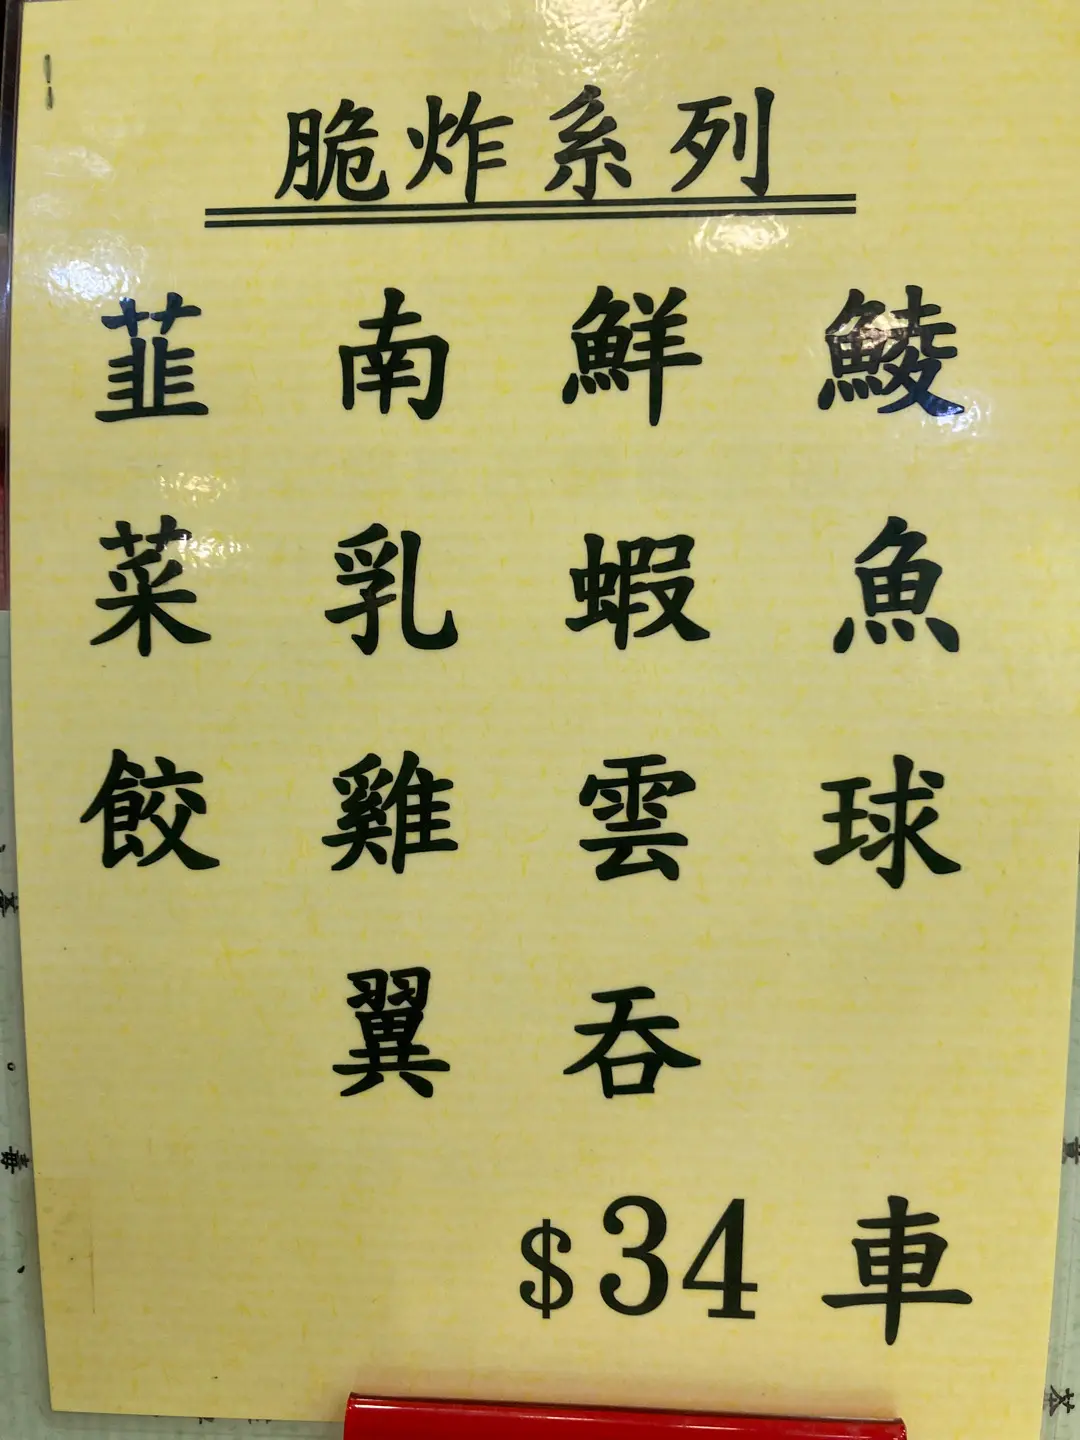 脆炸系列
鯪魚球
鮮蝦雲吞
南乳雞翼
韮菜餃
$34 車